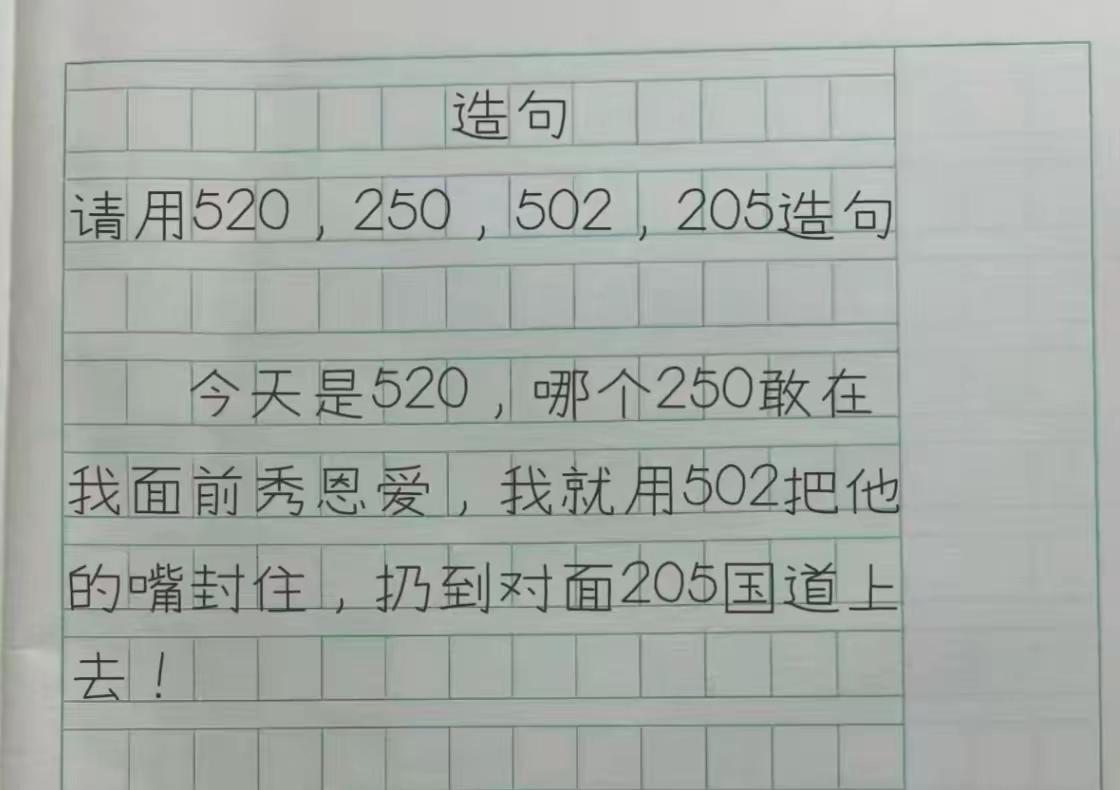 造句
请用520，250，502，205造句
今天是520，哪个250敢在
我面前秀恩爱，我就用502把他
的嘴封住，扔到对面205国道上
去！